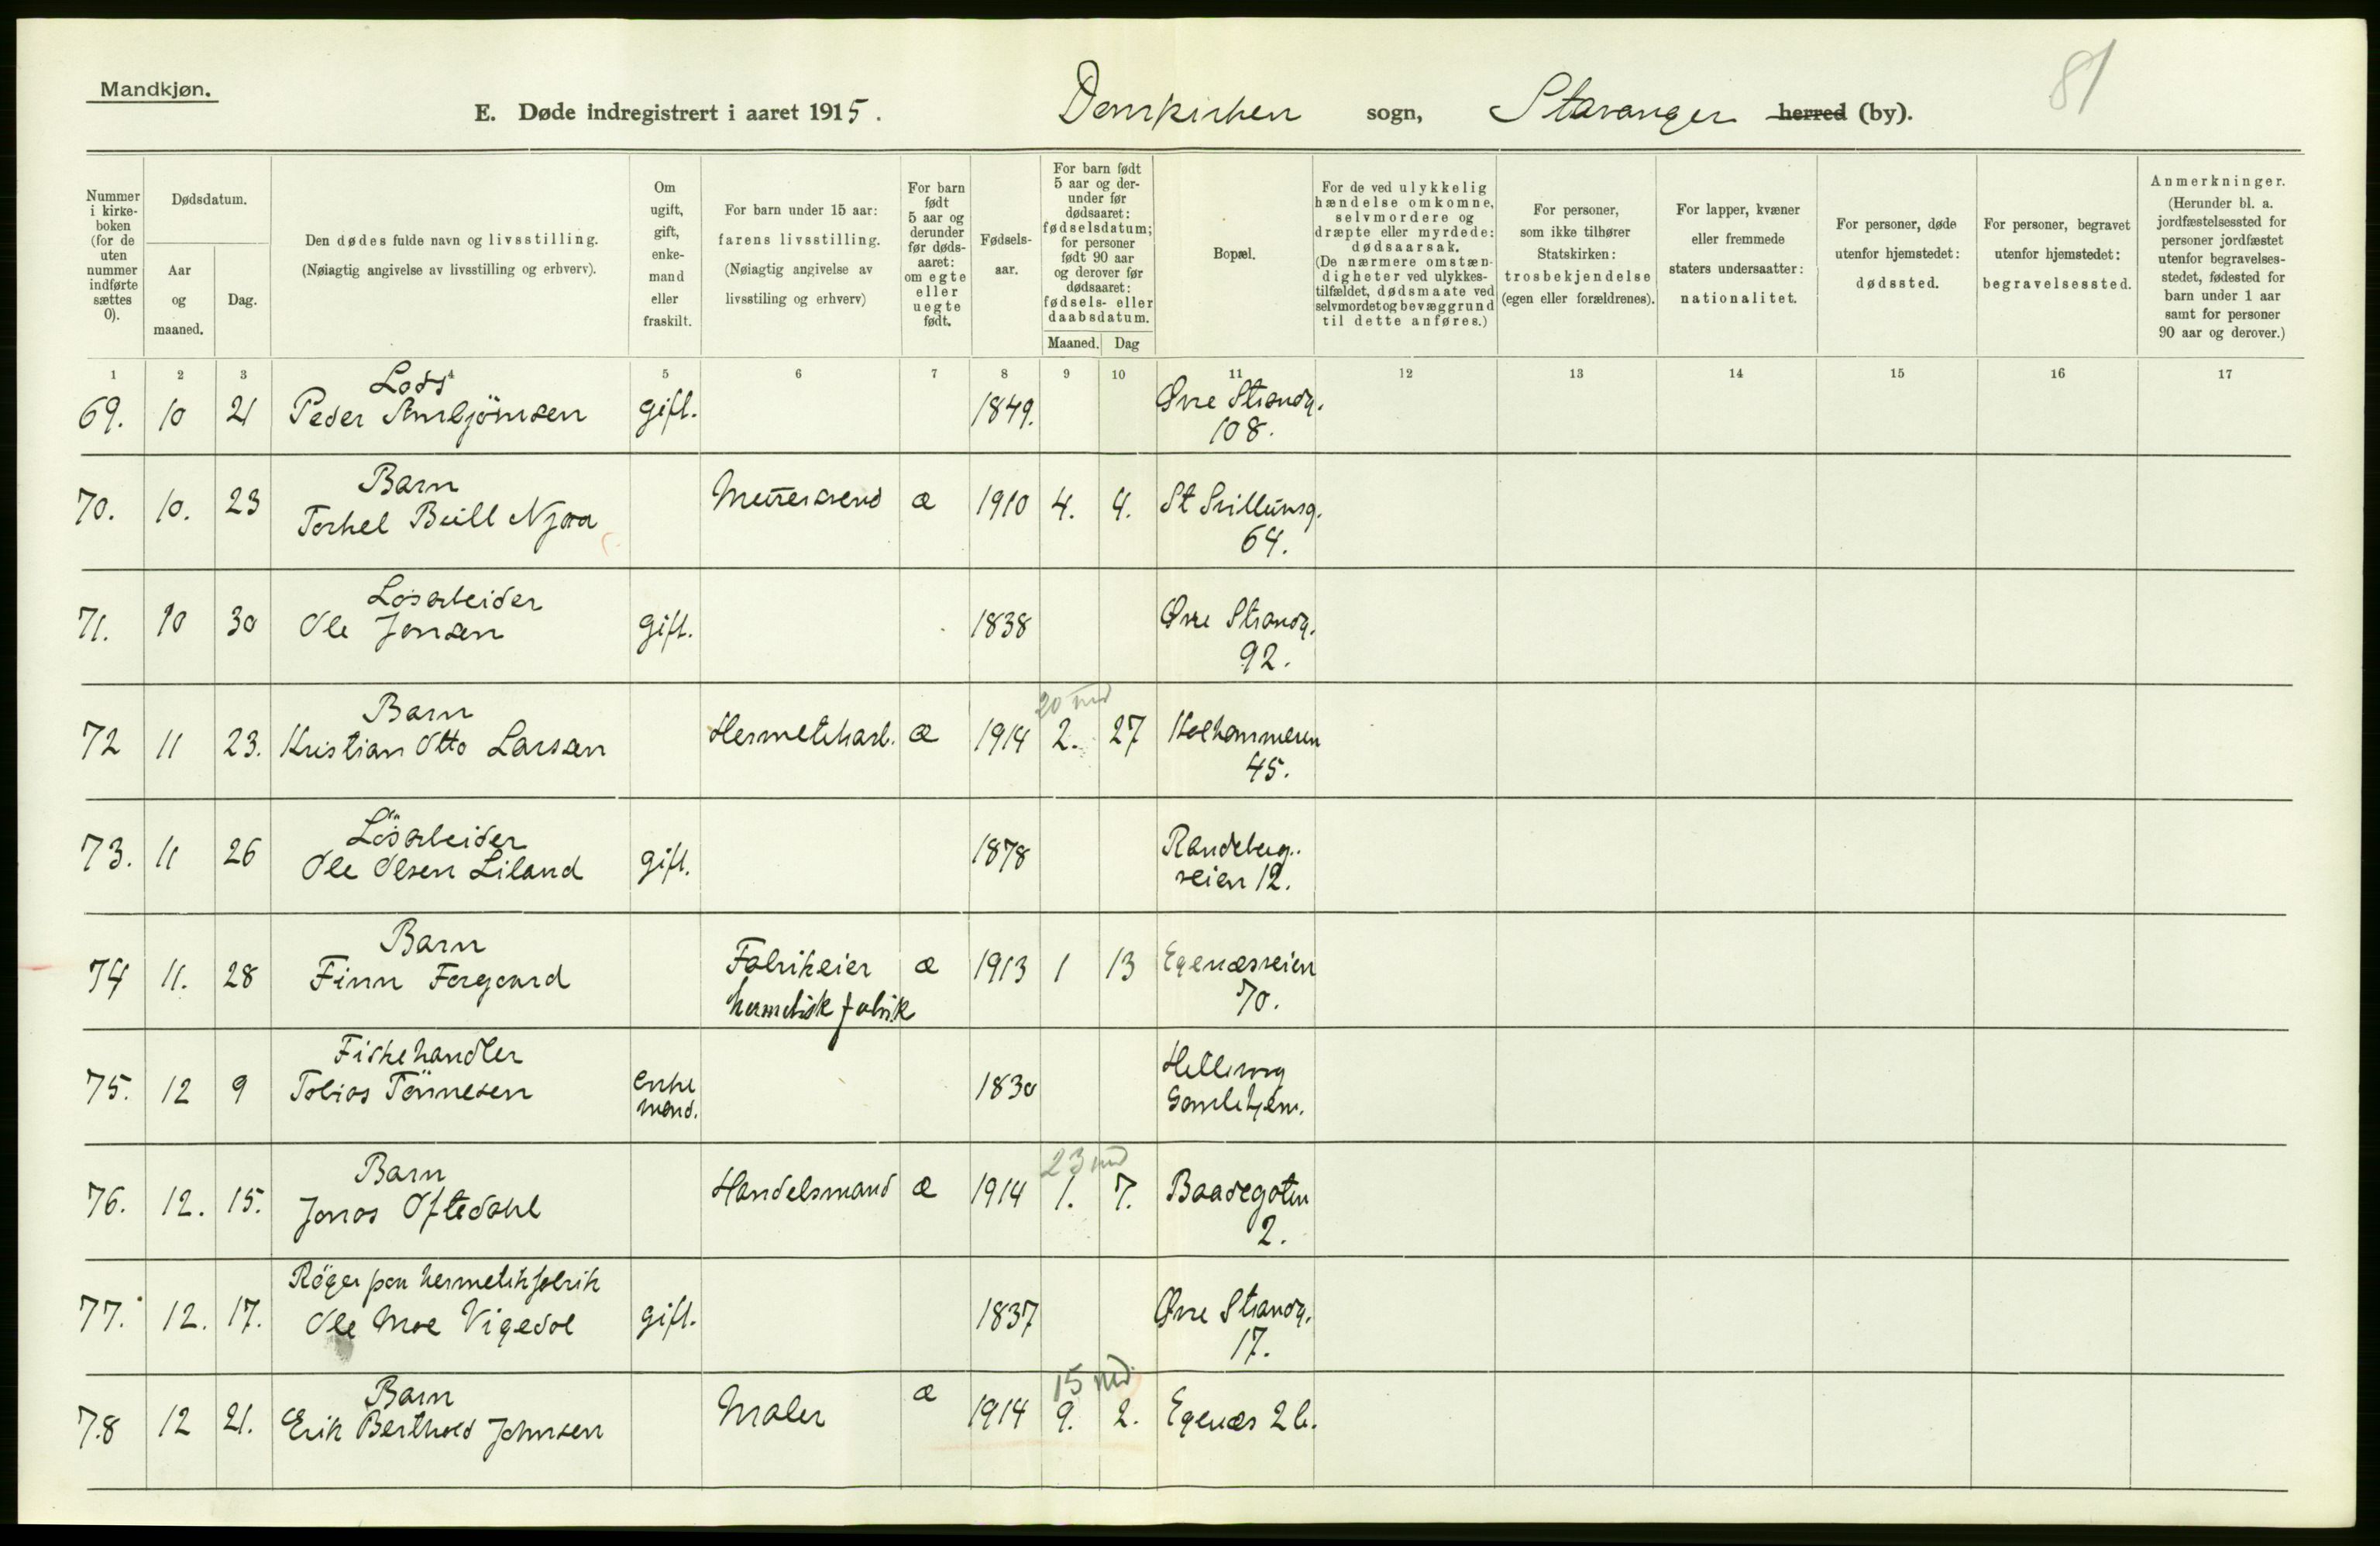 Mandkjøn.
81
E. Døde indregistrert i aaret 1915. Domkirken sogn, Stavanger herred (by).
Nummer i kirkeboken (for de uten nummer indførte sættes 0).
Dødsdatum.
Aar og maaned.
Dag.
Den dødes fulde navn og livsstilling.
(Nøiagtig angivelse av livsstilling og erhverv).
Om ugift, gift, enkemand eller fraskilt.
For barn under 15 aar: farens livsstilling.
(Nøiagtig angivelse av livsstiling og erhverv)
For barn født 5 aar og derunder før dødsaaret: om egte eller uegte født.
Fødselsaar.
For barn født 5 aar og derunder før dødsaaret: fødselsdatum; for personer født 90 aar og derover før dødsaaret: fødsels- eller daabsdatum.
Maaned. Dag
Bopæl.
For de ved ulykkelig hændelse omkomne, selvmordere og dræpte eller myrdede: dødsaarsak.
(De nærmere omstændigheter ved ulykkestilfældet, dødsmaate ved selvmordet og bevæggrund til dette anføres.)
For personer, som ikke tilhører Statskirken: trosbekjendelse (egen eller forældrenes).
For lapper, kvæner eller fremmede staters undersaatter: nationalitet.
For personer, døde utenfor hjemstedet: dødssted.
For personer, begravet utenfor hjemstedet: begravelsessted.
Anmerkninger.
(Herunder bl. a. jordfæstelsessted for personer jordfæstet utenfor begravelsesstedet, fødested for barn under 1 aar samt for personer 90 aar og derover.)
1 2 3 4 5 6 7 8 9 10 11 12 13 14 15 16 17
Lods
69. 10 21 Peder Arnbjörnsen gift. 1849. Øvre Strandg.
108.
Barn
70. 10. 23 Torkel Njaa Murersvend æ 1910 4. 4. St Svithunsg.
64.
Løsarbeider
71. 10 30 Ole Jonsen gift. 1838 Øvre Strandg.
92.
Barn 20 md
72 11 23. Kristian Otto Larsen Hermetikarb. æ 1914 2. 27 Kalhammeren
45.
Lösarbeider
73. 11 26 Ole Olsen Liland gift. 1878 Randeberg-
veien 12.
Barn
74 11. 28 Finn Forgaard Fabrikeier æ 1913 1 13 Egenæsveien
hermetikfabrik 70.
Fiskehandler
75. 12 9 Tobias Tönnesen enke
mand. 1830
Gamlehjem.
Barn 23 md
76. 12. 15. Jonas Oftedahl Handelsmand æ 1914 1. 7. Baadegaten
2.
Röger paa hermetikfabrik
77. 12. 17. Ole Moe Vigedal gift. 1837 Øvre Strandg.
17.
Barn 15 md.
78 12 21. Erik Berthold Johnsen Maler æ 1914 9. 2. Egenæs 2 b.